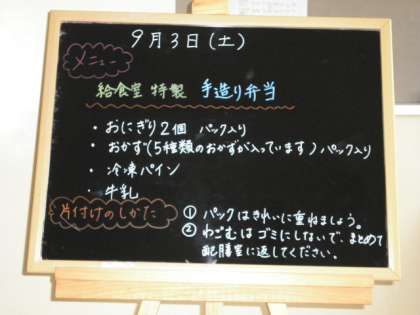 9月3日(土)
メニュー
給食室 特製 手造り弁当
・おにぎり2個 パック入り
・おかず(5種類のおかずが入っています)パック入り
・冷凍パイン
・牛乳
片付けのしかた
① パックはきれいに重ねましょう。
② わごむはゴミにしないで、まとめて
配膳室に返してください。